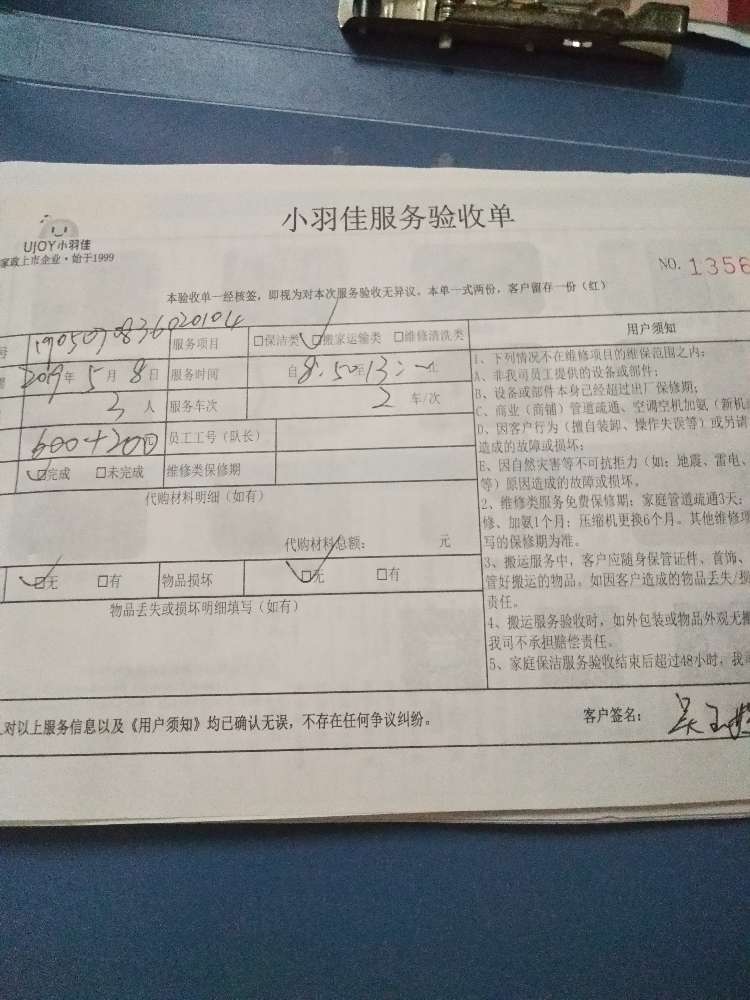 小羽佳服务验收单
UJOY小羽佳
家政上市企业·始于1999
NO. 1356
本验收单一经核签，即视为对本次服务验收无异议。本单一式两份，客户留存一份（红）
号 1905070836020104 服务项目 □保洁类 ☑搬家运输类 □维修清洗类
2019年 5月 8日 服务时间 自 8:50至13: 止
3人 服务车次 2 车/次
600+200元 员工工号（队长）
☑完成 □未完成 维修类保修期
代购材料明细（如有）
代购材料总额： 元
☑无 □有 物品损坏 ☑无 □有
物品丢失或损坏明细填写（如有）
用户须知
1、下列情况不在维修项目的维保范围之内：
A、非我司员工提供的设备或部件；
B、设备或部件本身已经超过出厂保修期；
C、商业（商铺）管道疏通、空调空机加氨（新机
D、因客户行为（擅自装卸、操作失误等）或另请
造成的故障或损坏；
E、因自然灾害等不可抗拒力（如：地震、雷电、
等）原因造成的故障或损坏。
2、维修类服务免费保修期：家庭管道疏通3天；
修、加氨1个月；压缩机更换6个月。其他维修项
写的保修期为准。
3、搬运服务中，客户应随身保管证件、首饰、
管好搬运的物品。如因客户造成的物品丢失/损
责任。
4、搬运服务验收时，如外包装或物品外观无
我司不承担赔偿责任。
5、家庭保洁服务验收结束后超过48小时，我
对以上服务信息以及《用户须知》均已确认无误，不存在任何争议纠纷。
客户签名： 吴玉